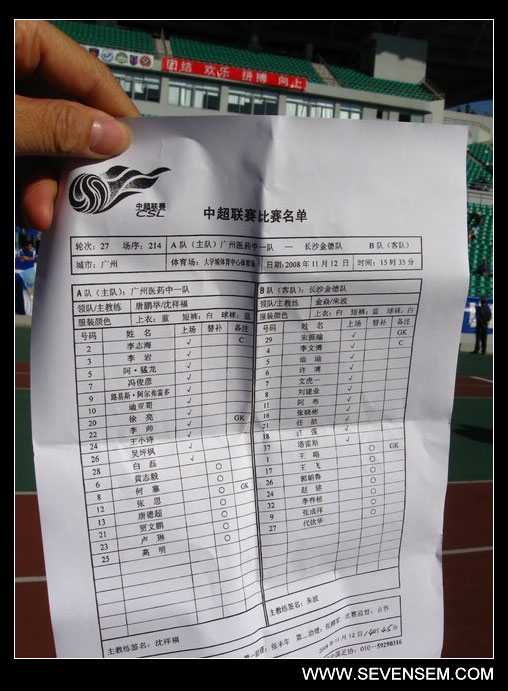 WWW.SEVENSEM.COM
团结 欢乐 拼搏 向上
中超联赛
CSL
中超联赛比赛名单
轮次：27 场序：214 A队（主队）广州医药中一队 — 长沙金德队 B队（客队）
城市：广州 体育场：大学城体育中心体育场 日期：2008年11月12日 时间：15时35分
A队（主队）：广州医药中一队
领队/主教练 唐鹏华/沈祥福
服装颜色 上衣：蓝 短裤：白 球袜：蓝
号码 姓名 上场 替补 备注
2 李志海 √ C
3 李岩 √
5 阿·猛龙 √
7 冯俊彦 √
9 路易斯·阿尔弗雷多 √
10 迪亚哥 √
20 徐亮 √
22 李帅 √ GK
24 王小诗 √
26 吴坪枫 √
28 白磊 ○
6 黄志毅 ○
8 何塞 ○
12 张思 ○
13 唐德超 ○
21 贾文鹏 ○
23 卢琳 ○
25 高明
主教练签名：沈祥福
B队（客队）：长沙金德队
领队/主教练 金焱/朱波
服装颜色 上衣：白 短裤：蓝 球袜：白
号码 姓名 上场 替补 备注
29 宋振瑜 √ GK
4 李文博 √ C
5 √
6 许博 √
7 文虎一 √
8 刘建业 √
11 阿布 √
16 张晓彬 √
21 任航 √
18 汪强 √
37 塔雷斯 √
1 王略 ○ GK
17 王飞 ○
26 郭朝鲁 ○
24 赵铭 ○
32 李春郁 ○
9 张成祥 ○
27 代钦华 ○
主教练签名：朱波
比赛监督：
2008年11月12日14时45分
中国足协：010-59290316
WWW.SEVENSEM.COM